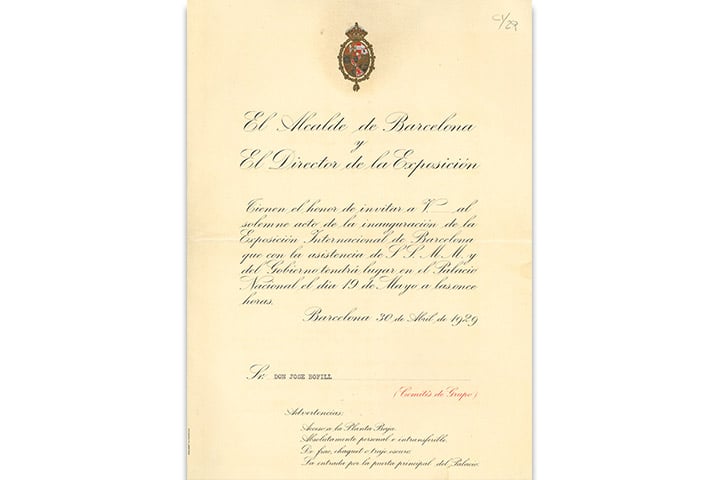 C/29
El Alcalde de Barcelona
y
El Director de la Exposición
Tienen el honor de invitar a V— al
solemne acto de la inauguración de la
Exposición Internacional de Barcelona
que con la asistencia de S.S. M.M. y
del Gobierno tendrá lugar en el Palacio
Nacional el día 19 de Mayo a las once
horas.
Barcelona 30 de Abril de 1929
Sr. DON JOSE BOFILL
(Comités de Grupo)
Advertencias:
Acceso a la Planta Baja.
Absolutamente personal e intransferible.
De frac, chaquet o traje oscuro.
La entrada por la puerta principal del Palacio.